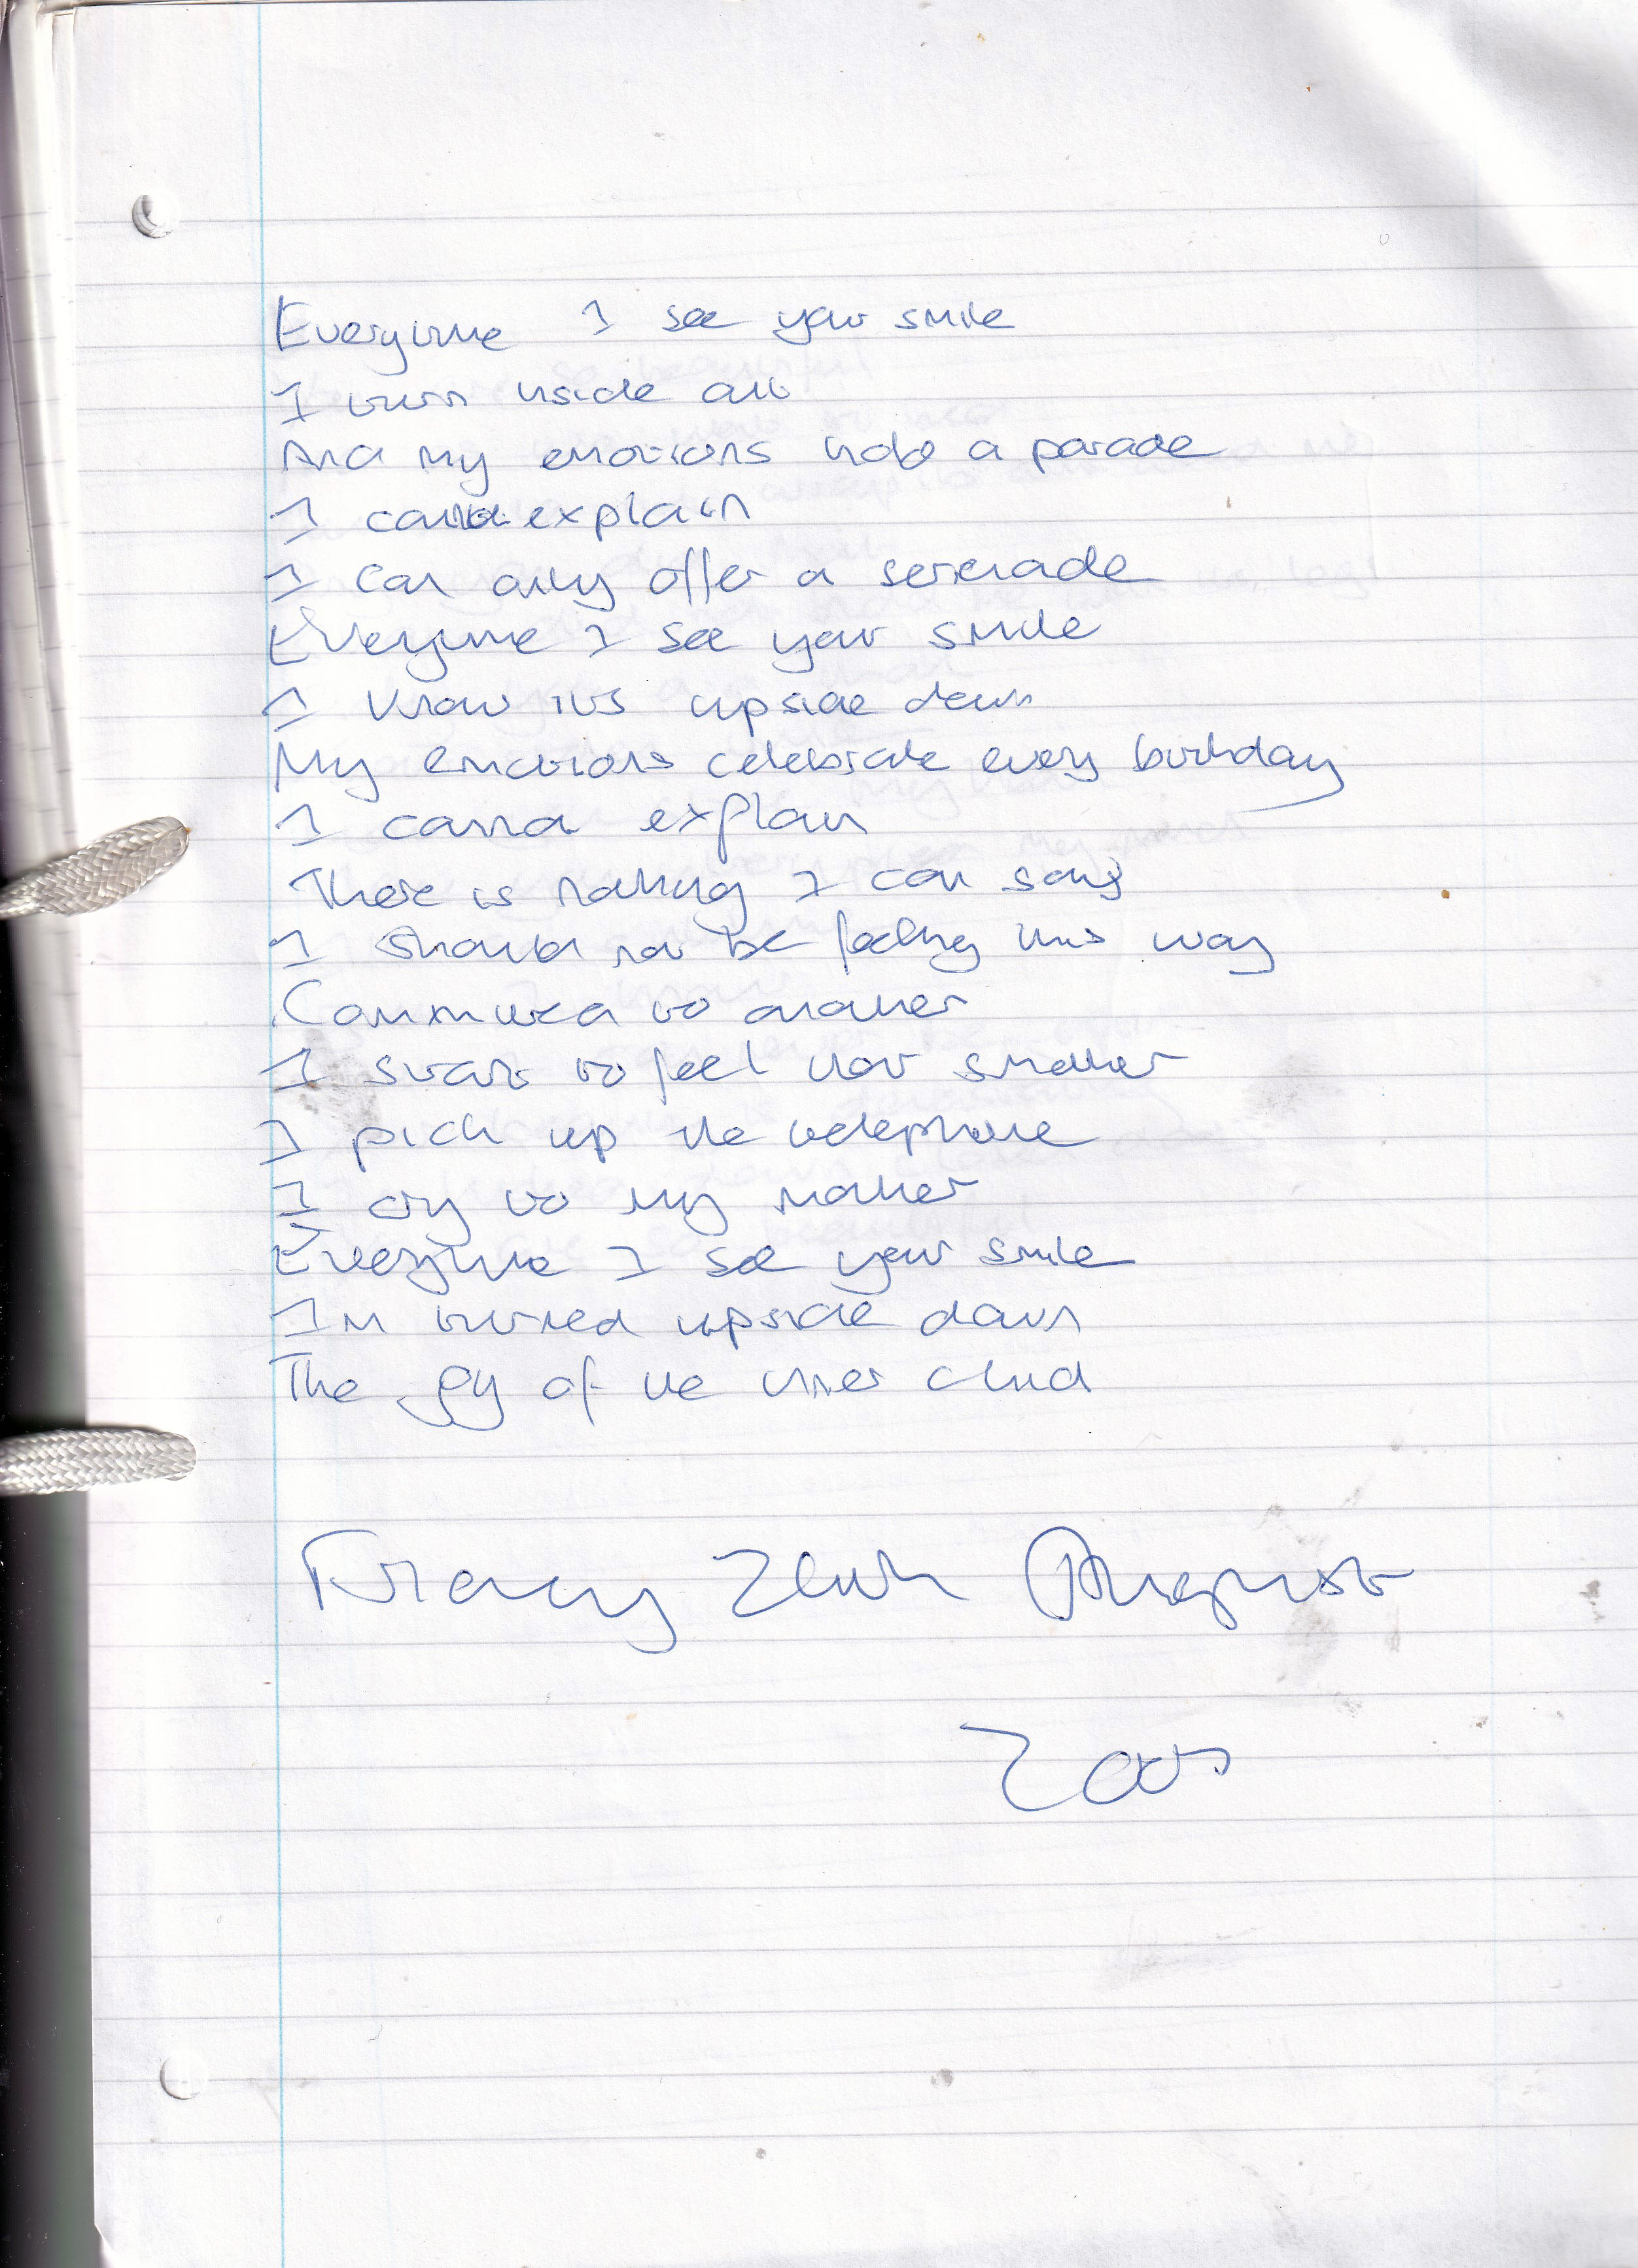 Everytime I see your smile
I turn inside out
And my emotions hold a parade
I cannot explain
I can only offer a serenade
Everytime I see your smile
I know its upside down
My emotions celebrate every birthday
I cannot explain
There is nothing I can say
I should not be feeling this way
Committed to another
I start to feel hot smother
I pick up the telephone
I cry to my mother
Everytime I see your smile
Im turned upside down
The joy of the inner child
August